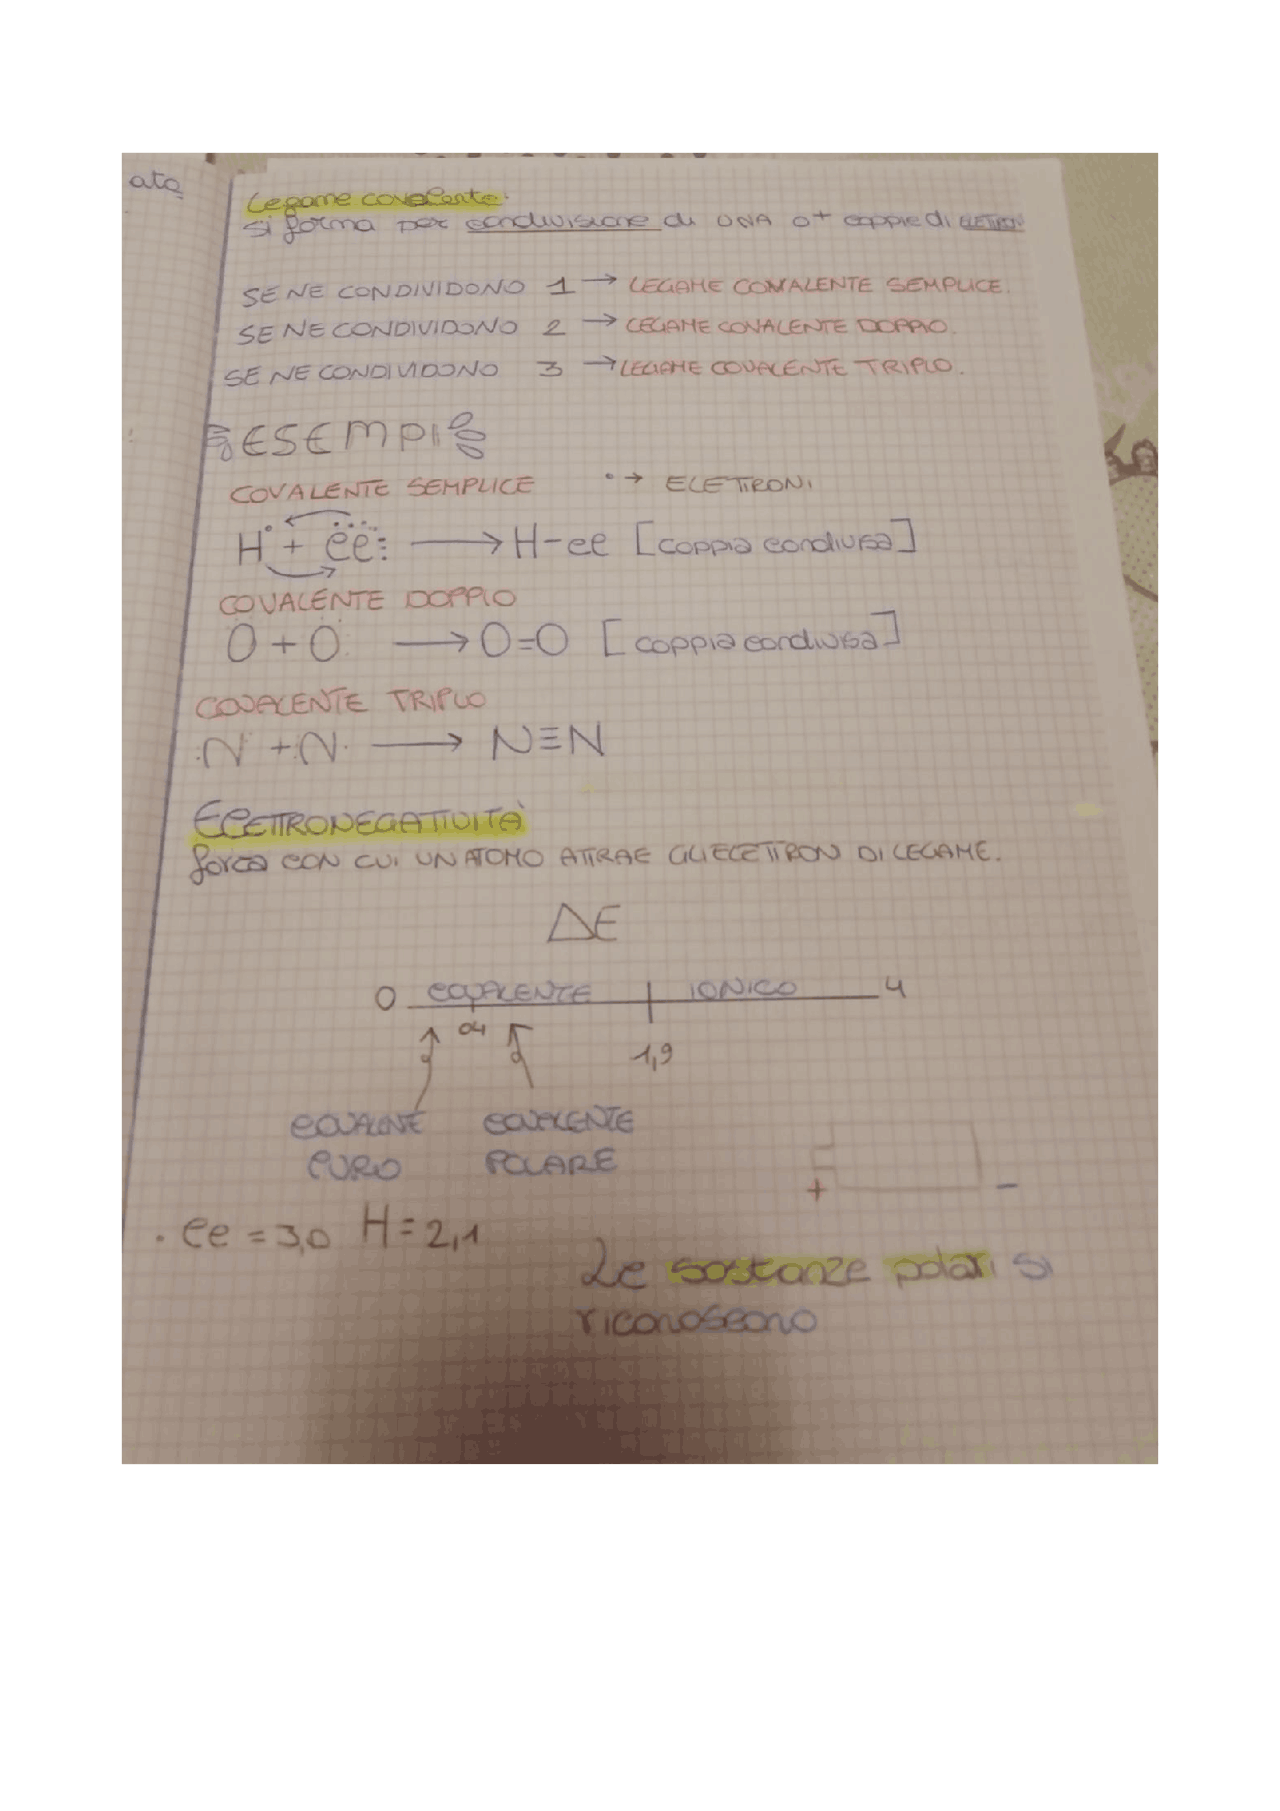 ata
Legame covalente:
si forma per condivisione di UNA o + coppie di ELETTRONI
SE NE CONDIVIDONO 1 → LEGAME COVALENTE SEMPLICE.
SE NE CONDIVIDONO 2 → LEGAME COVALENTE DOPPIO.
SE NE CONDIVIDONO 3 → LEGAME COVALENTE TRIPLO.
ESEMPI
COVALENTE SEMPLICE • → ELETTRONI
H + Cl → H-Cl [coppia condivisa]
COVALENTE DOPPIO
O + O → O=O [coppia condivisa]
COVALENTE TRIPLO
N + N → N≡N
ELETTRONEGATIVITÀ
forza CON CUI UN ATOMO ATTRAE GLI ELETTRON DI LEGAME.
ΔE
0 COVALENTE IONICO 4
04 1,9
COVALENTE COVALENTE
PURO POLARE
+ −
• Cl = 3,0 H = 2,1
Le sostanze polari si
riconoscono